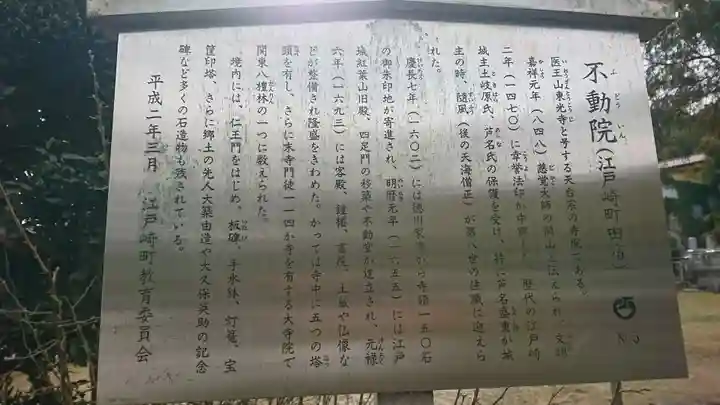 不動院(江戸崎町田宿)
医王山東光寺と号する天台宗の寺院である。
嘉祥元年(八四八)慈覚大師の開山と伝えられ、文明
二年(一四七〇)に幸誉法印が中興し 歴代の江戸崎
城主土岐原氏、芦名氏の保護を受け、特に芦名盛重が城
主の時、随風(後の天海僧正)が第八世の住職に迎えら
れた。
慶長七年(一六〇二)には徳川家康から寺領一五〇石
の御朱印地が寄進され、明暦元年(一六五五)には江戸
城紅葉山旧殿、四足門の移築や不動堂が建立され、元禄
六年(一六九三)には客殿、鐘楼、書院、土蔵や仏像な
どが整備され隆盛をきわめた。かつては寺中に五つの塔
頭を有し、さらに末寺門徒一一四か寺を有する大寺院で
関東八檀林の一つに数えられた。
境内には、仁王門をはじめ、板碑、手水鉢、灯篭、宝
篋印塔、さらに郷土の先人大築由造や大久保英助の記念
碑など多くの石造物も残されている。
平成二年三月 江戸崎町教育委員会